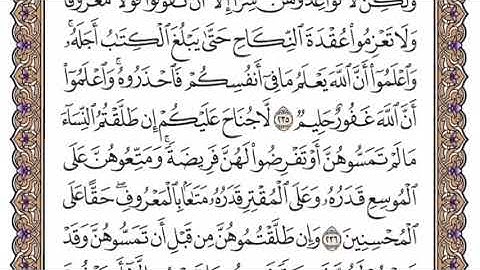 وَلَٰكِن لَّا تُوَاعِدُوهُنَّ سِرًّا إِلَّا أَن تَقُولُوا۟ قَوْلًا مَّعْرُوفًا
وَلَا تَعْزِمُوا۟ عُقْدَةَ ٱلنِّكَاحِ حَتَّىٰ يَبْلُغَ ٱلْكِتَٰبُ أَجَلَهُۥ
وَٱعْلَمُوٓا۟ أَنَّ ٱللَّهَ يَعْلَمُ مَا فِىٓ أَنفُسِكُمْ فَٱحْذَرُوهُ وَٱعْلَمُوٓا۟
أَنَّ ٱللَّهَ غَفُورٌ حَلِيمٌ ٢٣٥ لَّا جُنَاحَ عَلَيْكُمْ إِن طَلَّقْتُمُ ٱلنِّسَآءَ
مَا لَمْ تَمَسُّوهُنَّ أَوْ تَفْرِضُوا۟ لَهُنَّ فَرِيضَةً وَمَتِّعُوهُنَّ عَلَى
ٱلْمُوسِعِ قَدَرُهُۥ وَعَلَى ٱلْمُقْتِرِ قَدَرُهُۥ مَتَٰعًۢا بِٱلْمَعْرُوفِ حَقًّا عَلَى
ٱلْمُحْسِنِينَ ٢٣٦ وَإِن طَلَّقْتُمُوهُنَّ مِن قَبْلِ أَن تَمَسُّوهُنَّ وَقَدْ